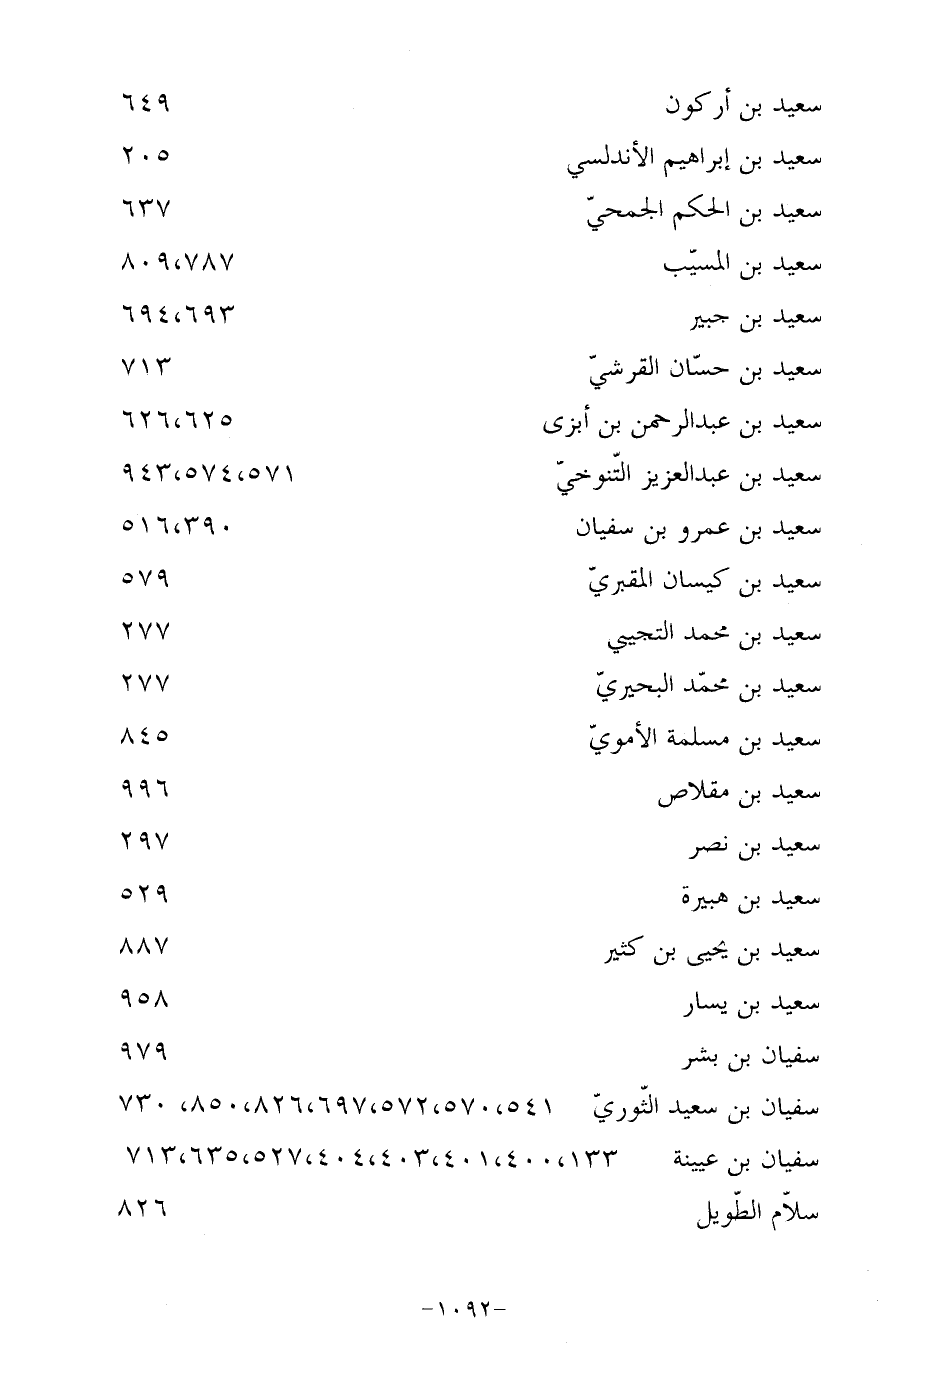 سعيد بن أركون ٦٤٩
سعيد بن إبراهيم الأندلسي ٢٠٥
سعيد بن الحكم الجمحيّ ٦٣٧
سعيد بن المسيّب ٨٠٩،٧٨٧
سعيد بن جبير ٦٩٤،٦٩٣
سعيد بن حسّان القرشيّ ٧١٣
سعيد بن عبدالرحمن بن أبزى ٦٢٦،٦٢٥
سعيد بن عبدالعزيز التّنوخيّ ٩٤٣،٥٧٤،٥٧١
سعيد بن عمرو بن سفيان ٥١٦،٣٩٠
سعيد بن كيسان المقبريّ ٥٧٩
سعيد بن محمد التجيبي ٢٧٧
سعيد بن محمّد البحيريّ ٢٧٧
سعيد بن مسلمة الأمويّ ٨٤٥
سعيد بن مقلاص ٩٩٦
سعيد بن نصر ٢٩٧
سعيد بن هبيرة ٥٢٩
سعيد بن يحيى بن كثير ٨٨٧
سعيد بن يسار ٩٥٨
سفيان بن بشر ٩٧٩
سفيان بن سعيد الثّوريّ ٧٣٠ ،٨٥٠،٨٢٦،٦٩٧،٥٧٢،٥٧٠،٥٤١
سفيان بن عيينة ٧١٣،٦٣٥،٥٢٧،٤٠٤،٤٠٣،٤٠١،٤٠٠،١٣٣
سلاّم الطّويل ٨٢٦
-١٠٩٢-